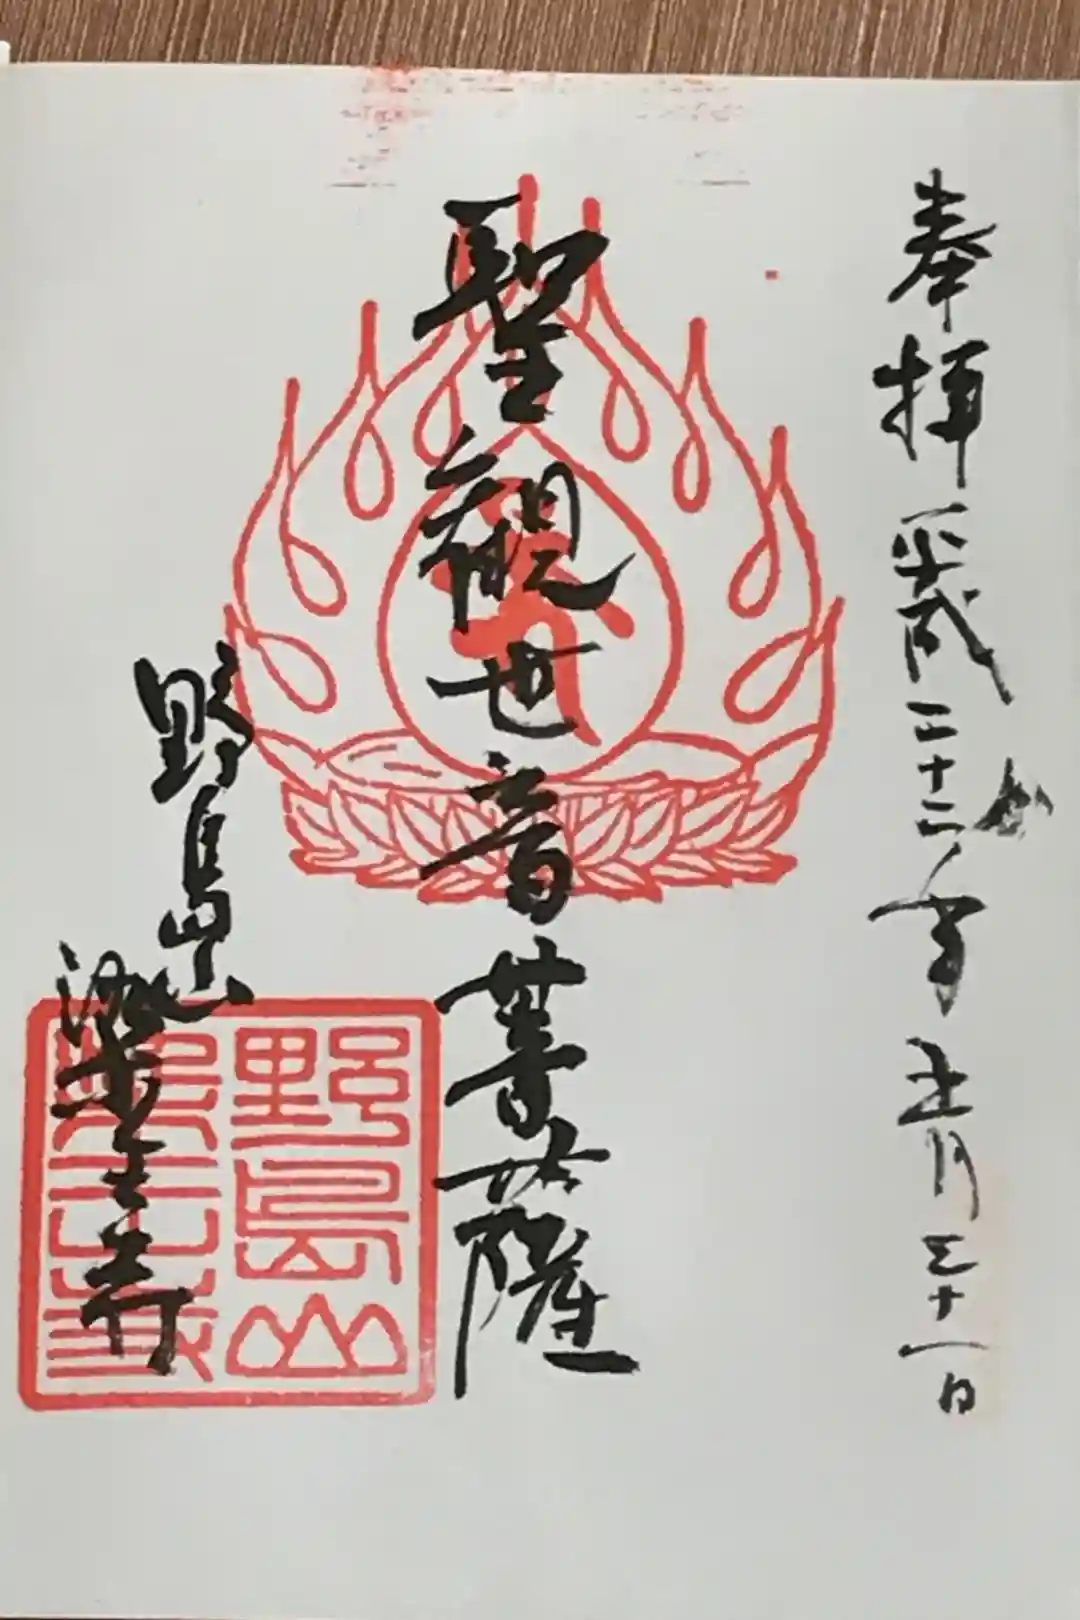 奉拝 平成二十二年 正月三十一日
聖観世音菩薩
野島山
染王寺
野島山
染王寺